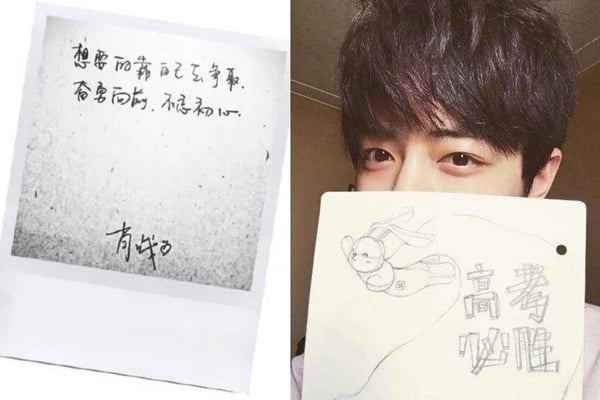 想要的靠自己去争取,
奋勇向前、不忘初心.
肖战
高考
必胜